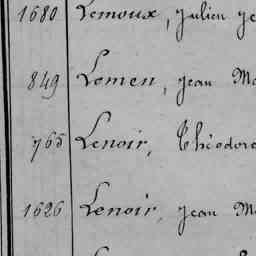 1680 Lemoux, Julien
849 Lemen, Jean
765 Lenoir, Théodore
1626 Lenoir, Jean